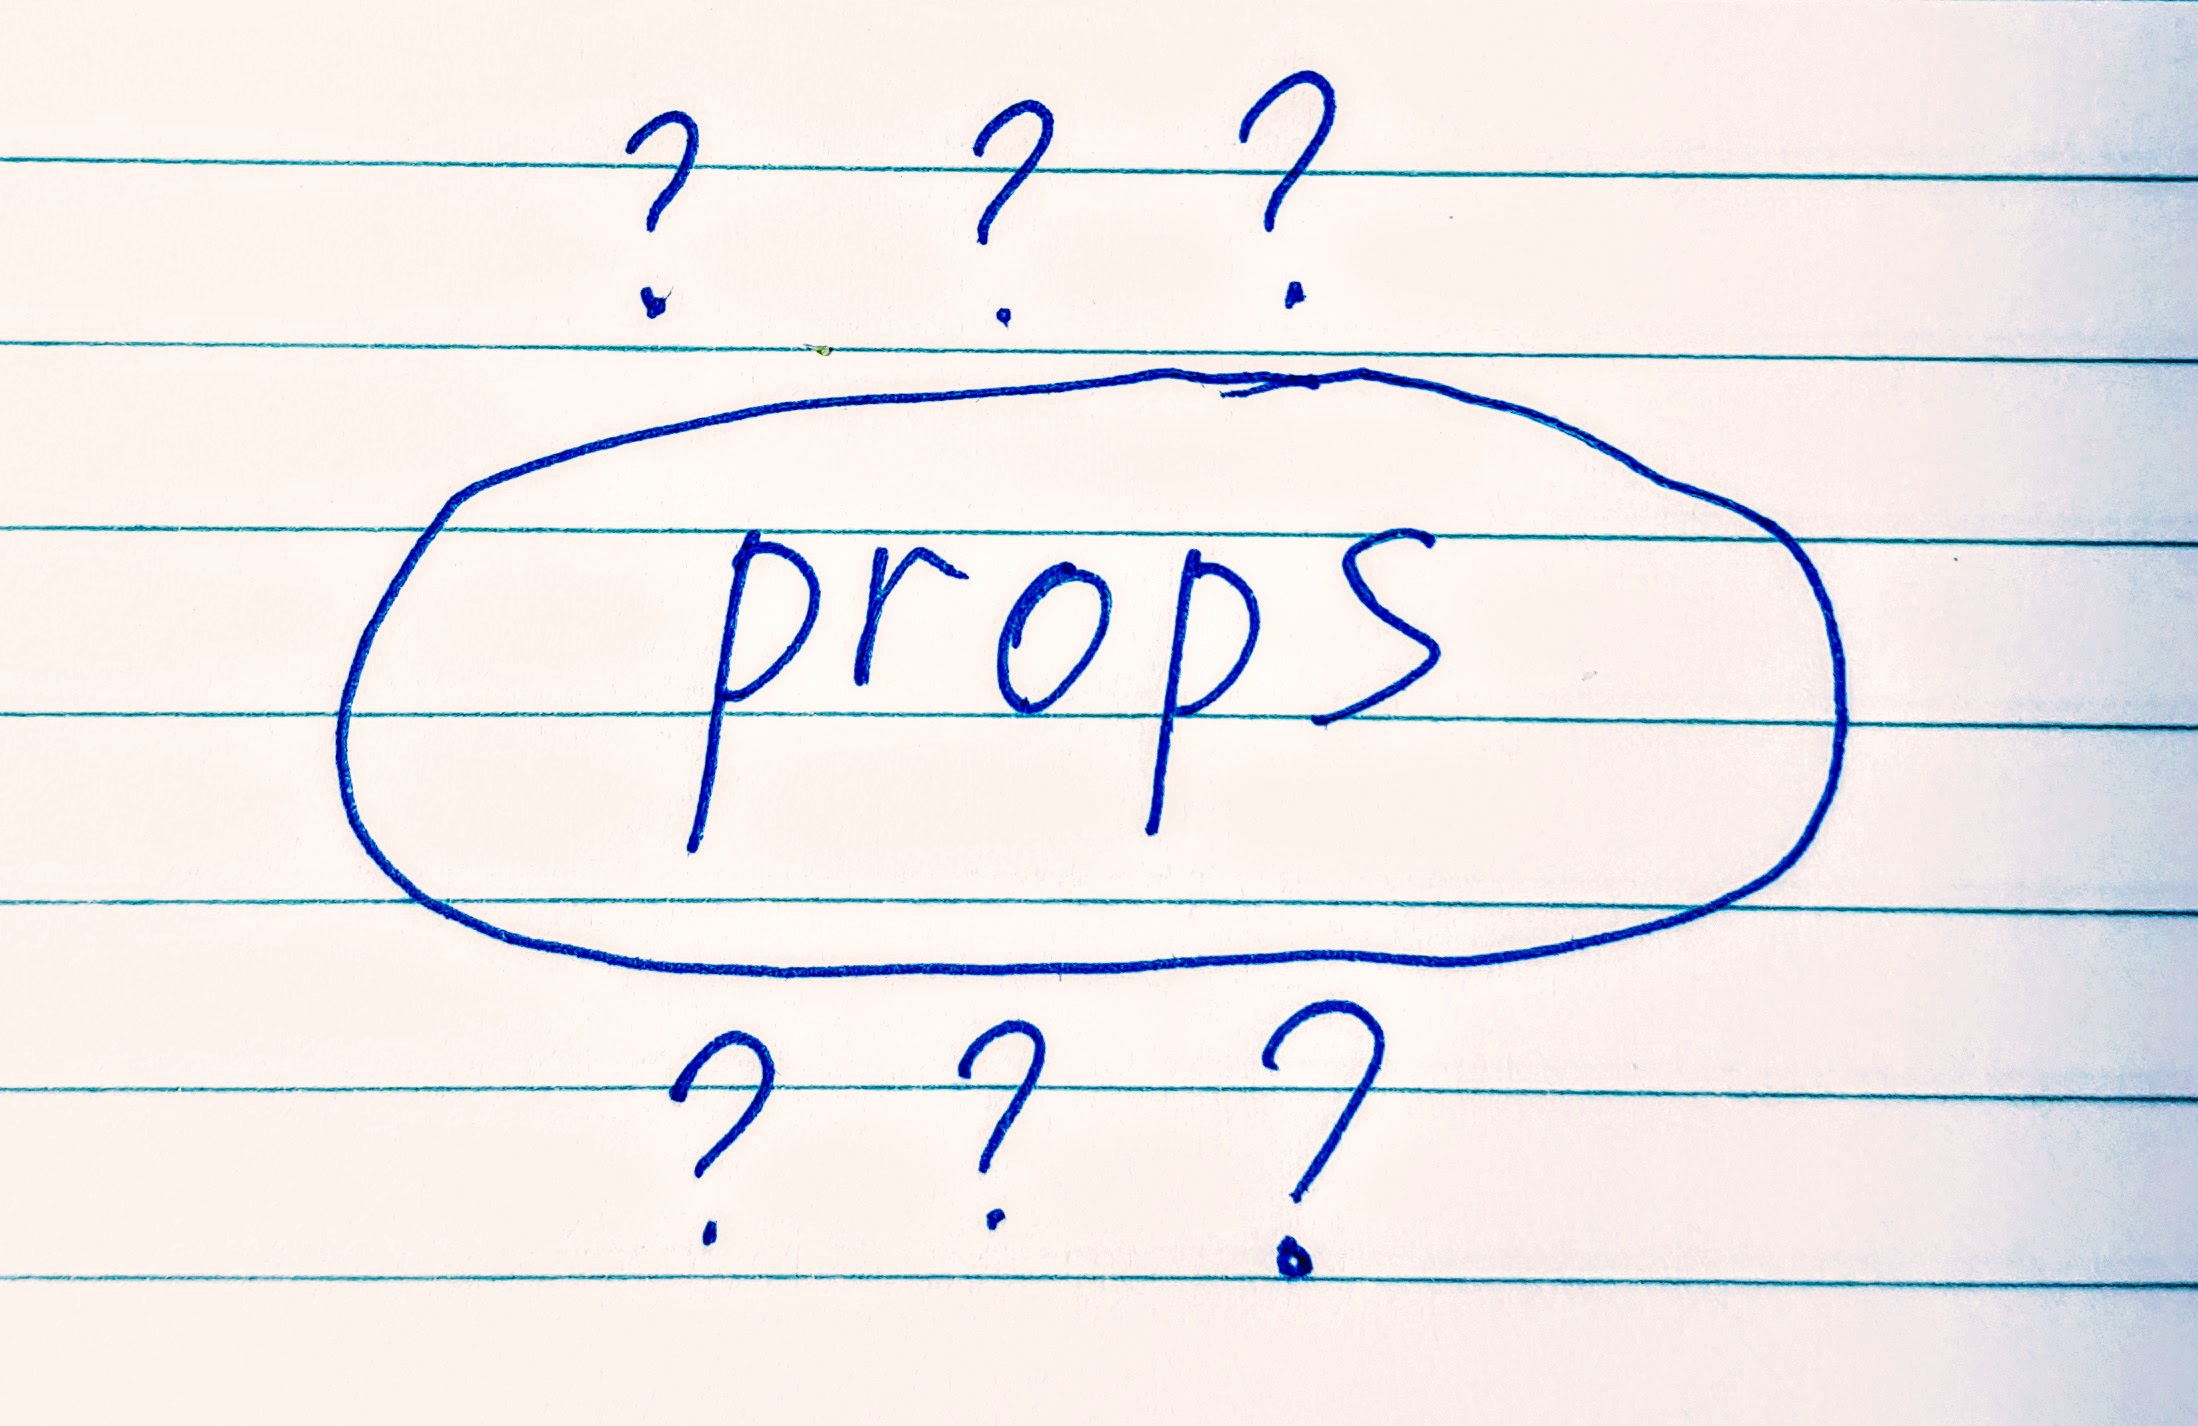 ? ? ?
props
? ? ?